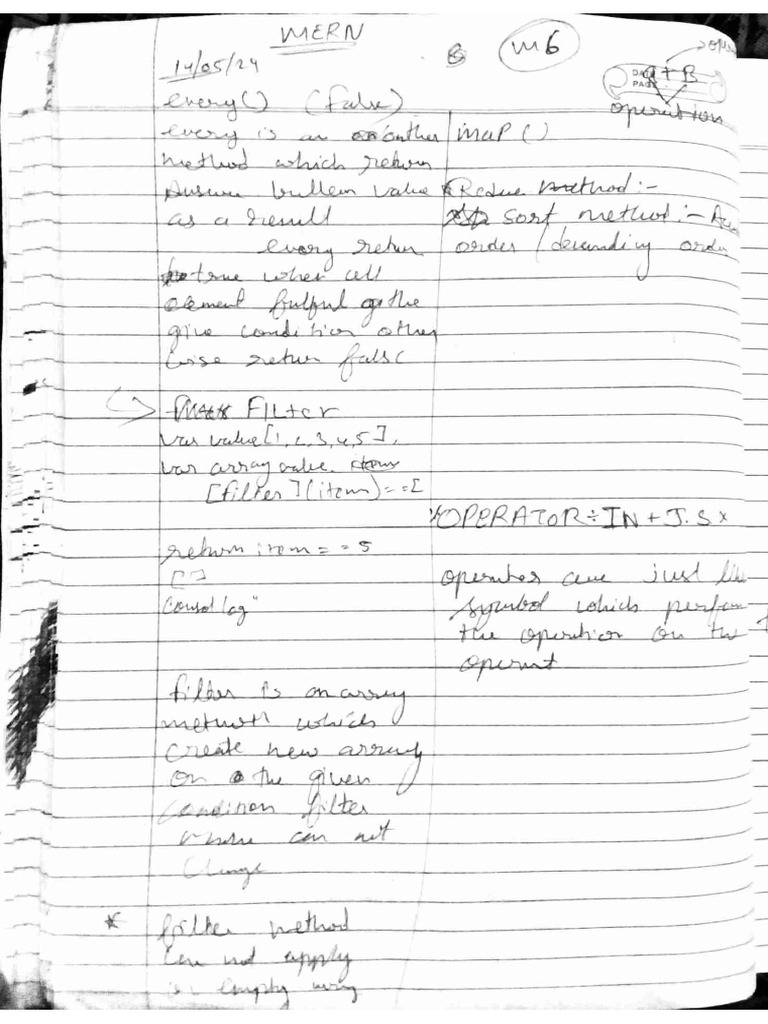 MERN
M6
14/05/24
DATE
PAGE
A + B
operation
every() (false)
every is an another
method which return
value
as a result
every return
true when all
element fulful the
give condition other
wise return fals(
Filter
var value[1,2,3,4,5],
var array value. item
[filter](item)==[
return item == 5
[]
consol log"
filter is an array
method which
create new array
on the given
condition filter
can not
change
* filter method
can not apply
in empty array
map()
* Redue method :-
sort method :-
order / decending order
OPERATOR ÷ IN + J.S x
operator are just like
symbol which perfom
the operation on the
operent